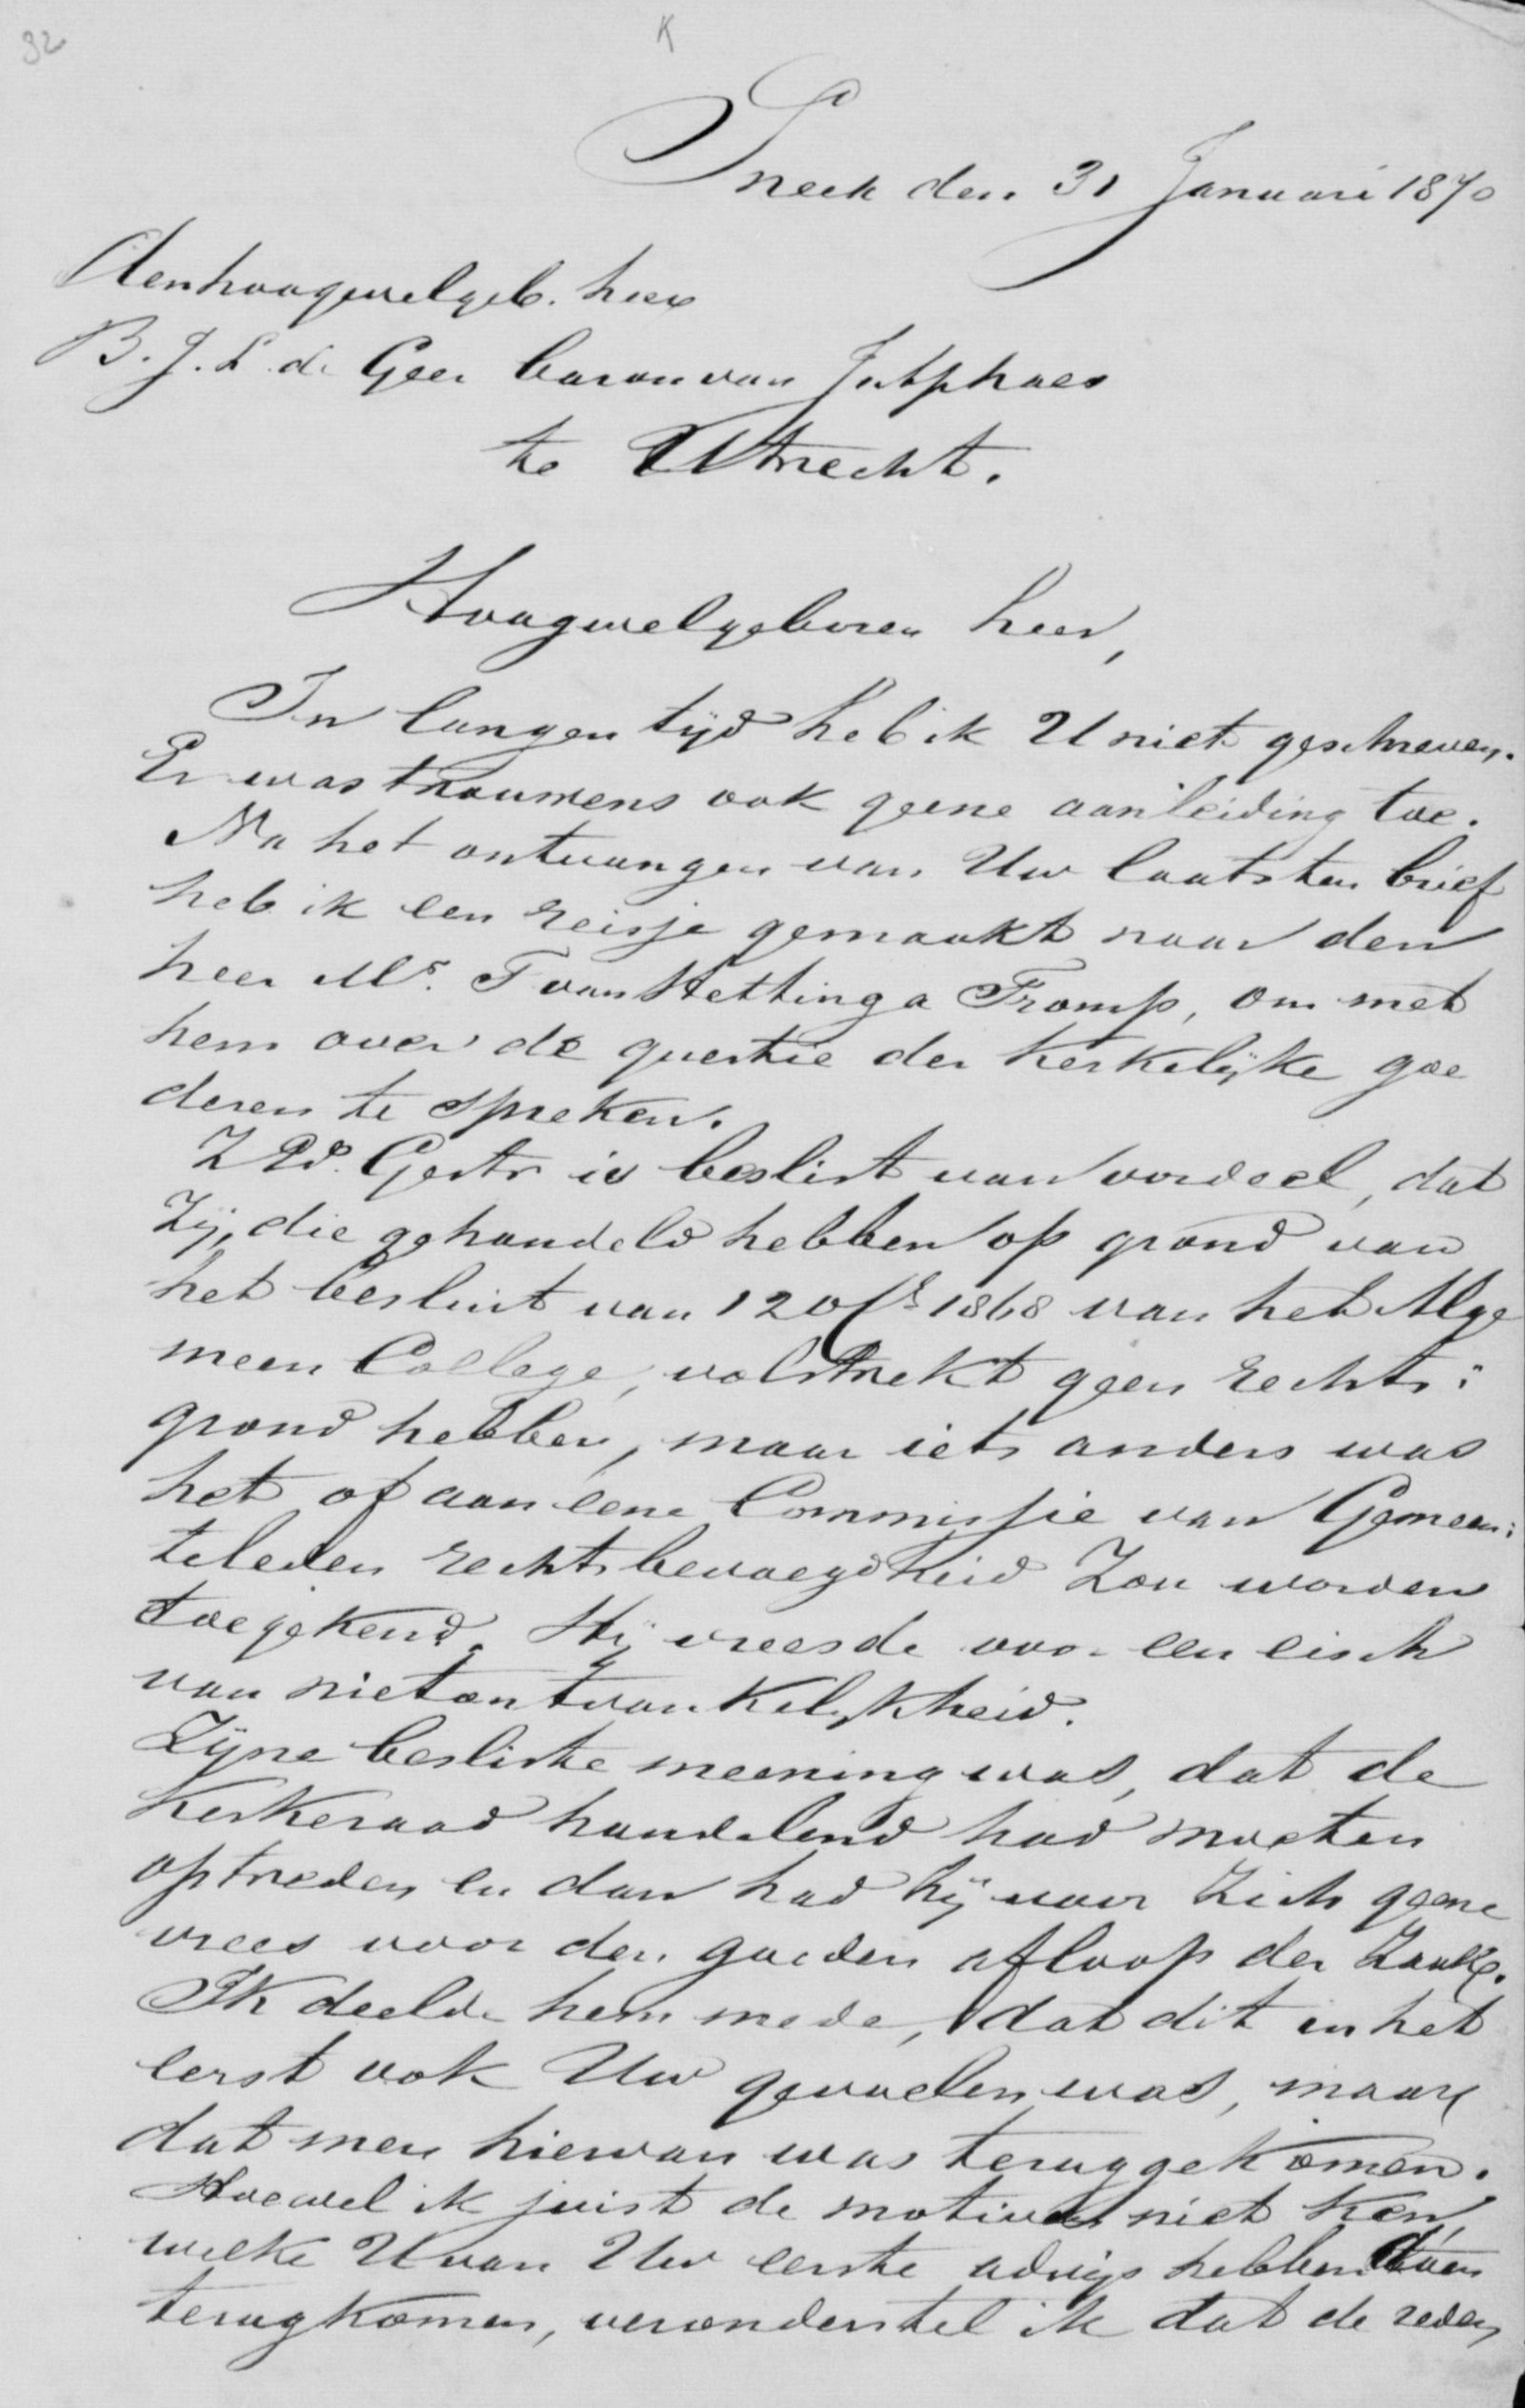 32
K
Sneek den 31 Januari 1870
Den hoogwelgeb. heer
B. J. L. de Geer baron van Jutphaas
te Utrecht.
Hoogwelgeboren heer,
In langen tijd heb ik U niet geschreven.
Er was trouwens ook geene aanleiding toe.
Na het ontvangen van Uw laatsten brief
heb ik een reisje gemaakt naar den
heer Mr. T van Hettinga Tromp, om met
hem over de questie der kerkelijke goe
deren te spreken.
ZEd. Gestr is beslist van oordeel, dat
zij, die gehandeld hebben op grond van
het besluit van 12 Oct 1868 van het Alge
meen College, volstrekt geen rechts:
grond hebben, maar iets anders was
het of aan eene Commissie van Gemeen:
teleden rechtsbevoegdheid zou worden
toegekend. Hij vreesde voor een eisch
van nietontvankelijkheid.
Zijne besliste meening was, dat de
Kerkeraad handelend had moeten
optreden en dan had hij voor zich geene
vrees voor den goeden afloop der zaak.
Ik deelde hem mede, dat dit in het
eerst ook Uw gevoelen was, maar
dat men hiervan was teruggekomen.
Hoewel ik juist de motiven niet ken,
welke U van Uw eerste advijs hebben doen
terugkomen, veronderstel ik dat de reden